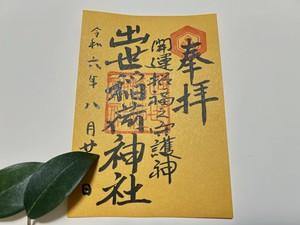 奉拝
開運招福之守護神
出世稲荷神社
令和六年八月廿日